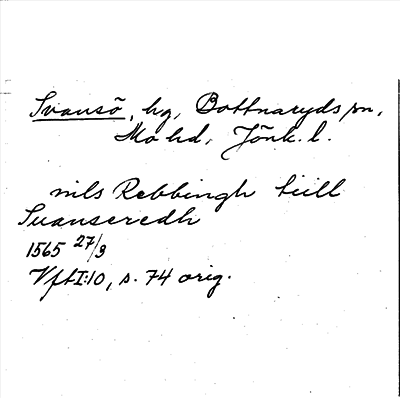 Svansö, hg, Bottnaryds sn,
Mo hd, Jönk. l.
nils Rebbingh tiill
Suanseredh
1565 27/9
VftI:10, s. 74 orig.